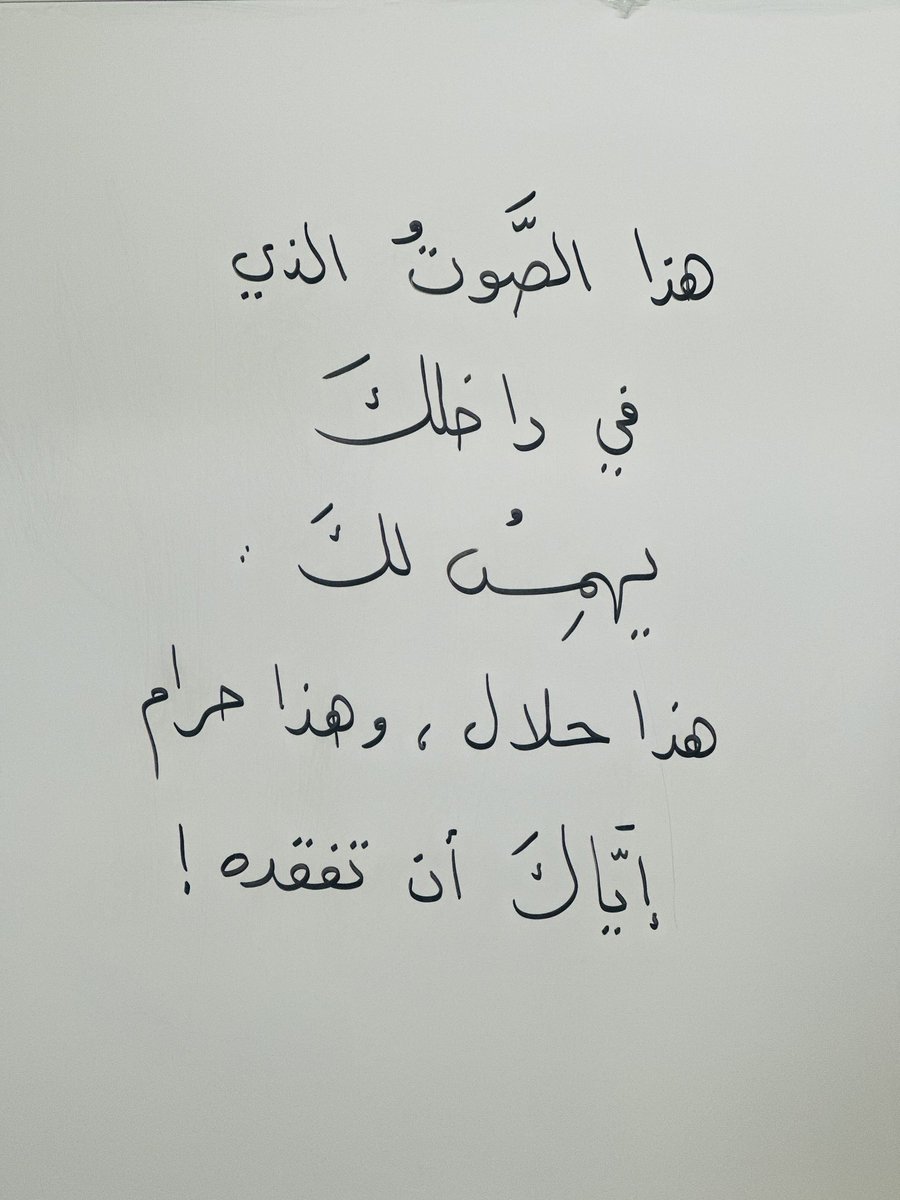 هذا الصَّوتُ الذي
في داخلكَ
يهمِسُ لكَ :
هذا حلال ، وهذا حرام
إيَّاكَ أن تفقده !